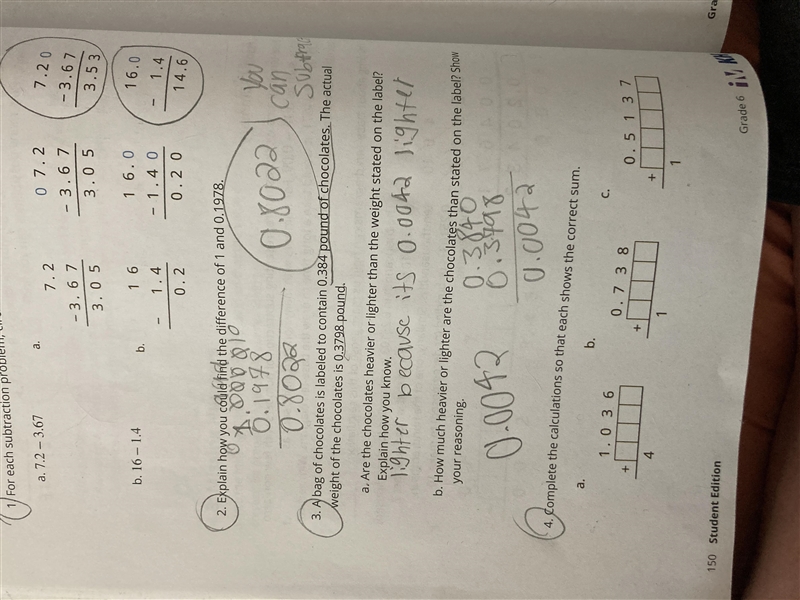 1 For each subtraction problem,
a. 7.2 − 3.67
a.
7.2
−3.67
3.05
0 7.2
−3.67
3.05
7.20
−3.67
3.53
b. 16 − 1.4
b.
16
− 1.4
0.2
16.0
−1.40
0.20
16.0
− 1.4
14.6
2. Explain how you could find the difference of 1 and 0.1978.
0.1978
0.8022
0.8022
You
can
Subtrac
3. A bag of chocolates is labeled to contain 0.384 pound of chocolates. The actual
weight of the chocolates is 0.3798 pound.
a. Are the chocolates heavier or lighter than the weight stated on the label?
Explain how you know.
lighter because its 0.0042 lighter
b. How much heavier or lighter are the chocolates than stated on the label? Show
your reasoning.
0.0042
0.3840
0.3798
0.0042
4. Complete the calculations so that each shows the correct sum.
a.
1.036
+
4
b.
0.738
+
1
c.
0.5137
+
1
150 Student Edition
Grade 6
Gra